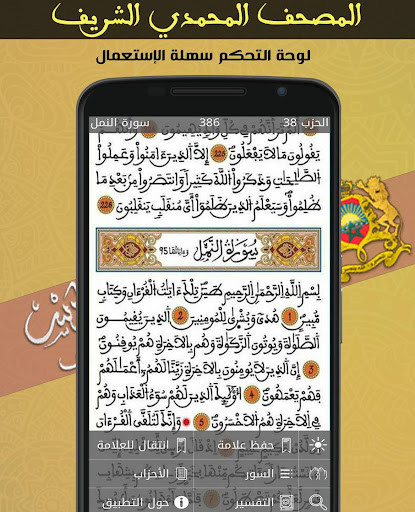 المصحف المحمدي الشريف
لوحة التحكم سهلة الإستعمال
الحزب 38 386 سورة النمل
يَقُولُونَ مَا لَا يَفْعَلُونَ 225 إِلَّا الَّذِينَ ءَامَنُوا وَعَمِلُوا
الصَّٰلِحَٰتِ وَذَكَرُوا اللَّهَ كَثِيرًا وَانتَصَرُوا مِنۢ بَعْدِ مَا
ظُلِمُوا وَسَيَعْلَمُ الَّذِينَ ظَلَمُوا أَيَّ مُنقَلَبٍ يَنقَلِبُونَ 226
سُورَةُ النَّمْلِ وءاياتها 95
بِسْمِ اللَّهِ الرَّحْمَٰنِ الرَّحِيمِ طسٓ تِلْكَ ءَايَٰتُ الْقُرْءَانِ وَكِتَابٍ
مُّبِينٍ 1 هُدًى وَبُشْرَىٰ لِلْمُومِنِينَ 2 الَّذِينَ يُقِيمُونَ
الصَّلَوٰةَ وَيُوتُونَ الزَّكَوٰةَ وَهُم بِالَاخِرَةِ هُمْ يُوقِنُونَ
3 إِنَّ الَّذِينَ لَا يُومِنُونَ بِالَاخِرَةِ زَيَّنَّا لَهُمُۥ أَعْمَٰلَهُمْ
فَهُمْ يَعْمَهُونَ 4 أُوْلَٰٓئِكَ الَّذِينَ لَهُمْ سُوٓءُ الْعَذَابِ وَهُمْ
فِي الَاخِرَةِ هُمُ الَاخْسَرُونَ 5 وَإِنَّكَ لَتُلَقَّى الْقُرْءَانَ
حفظ علامة انتقال للعلامة
السور الأحزاب
التفسير حول التطبيق